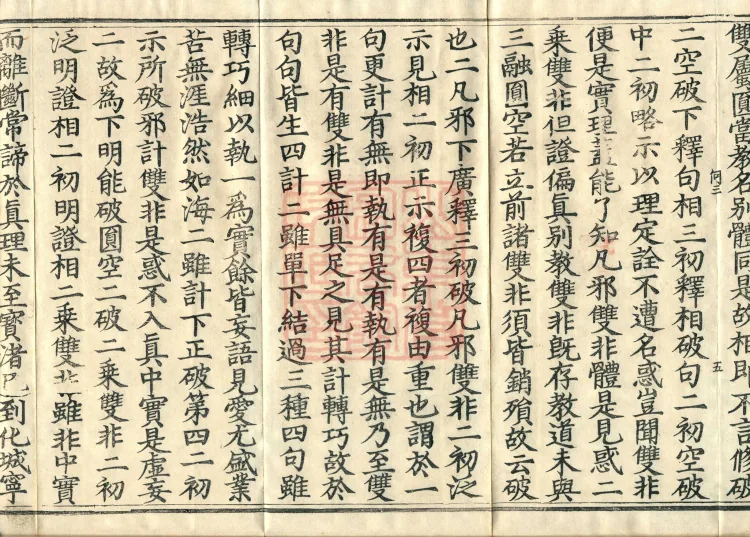 雙厲圓當教名別體同是故相即不言修破
何三 五
二空破下釋句相三初釋相破句二初空破
中二初略示以理定詮不遭名惑豈聞雙非
便是實理若能了知凡邪雙非體是見惑二
乘雙非但證偏真別教雙非旣存教道未與
三融圓空若立前諸雙非須皆銷殞故云破
也二凡邪下廣釋三初破凡邪雙非二初泛
示見相二初正示複四者複由重也謂於一
句更計有無即執有是有執有是無乃至雙
非是有雙非是無具足之見其計轉巧故於
句句皆生四計二雖單下結過三種四句雖
轉巧細以執一爲實餘皆妄語見愛尤盛業
苦無涯浩然如海二雖計下正破第四二初
示所破邪計雙非是惑不入真中實是虛妄
二故爲下明能破圓空二破二乘雙非二初
泛明證相二初明證相二乘雙非雖非中實
而離斷常諦於真理未至寶渚已到化城寧